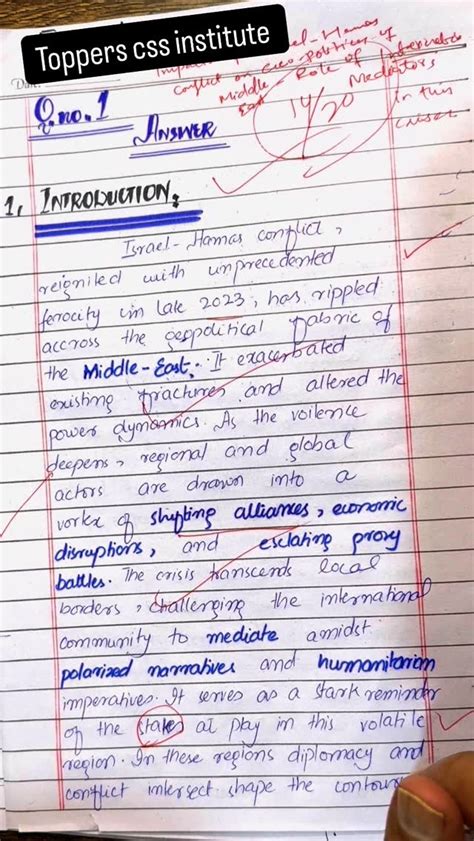 Toppers css institute
Impact Israel-Hamas
conflict on Geo-politics of
Middle East Role of International
Mediators
in this
14/20
Q.no.1
ANSWER
1, INTRODUCTION:
Israel-Hamas conflict,
reignited with unprecedented
ferocity in late 2023, has rippled
accross the geopolitical fabric of
the Middle-East. It exacerbated
existing fractures and altered the
power dynamics. As the voilence
deepens, regional and global
actors are drawn into a
vortex of shifting alliances, economic
disruptions, and esclating proxy
battles. The crisis transcends local
borders, challenging the international
community to mediate amidst
polarized narratives and humanitarian
imperatives. It serves as a stark reminder
of the stakes at play in this volatile
region. In these regions diplomacy and
conflict intersect shape the contours